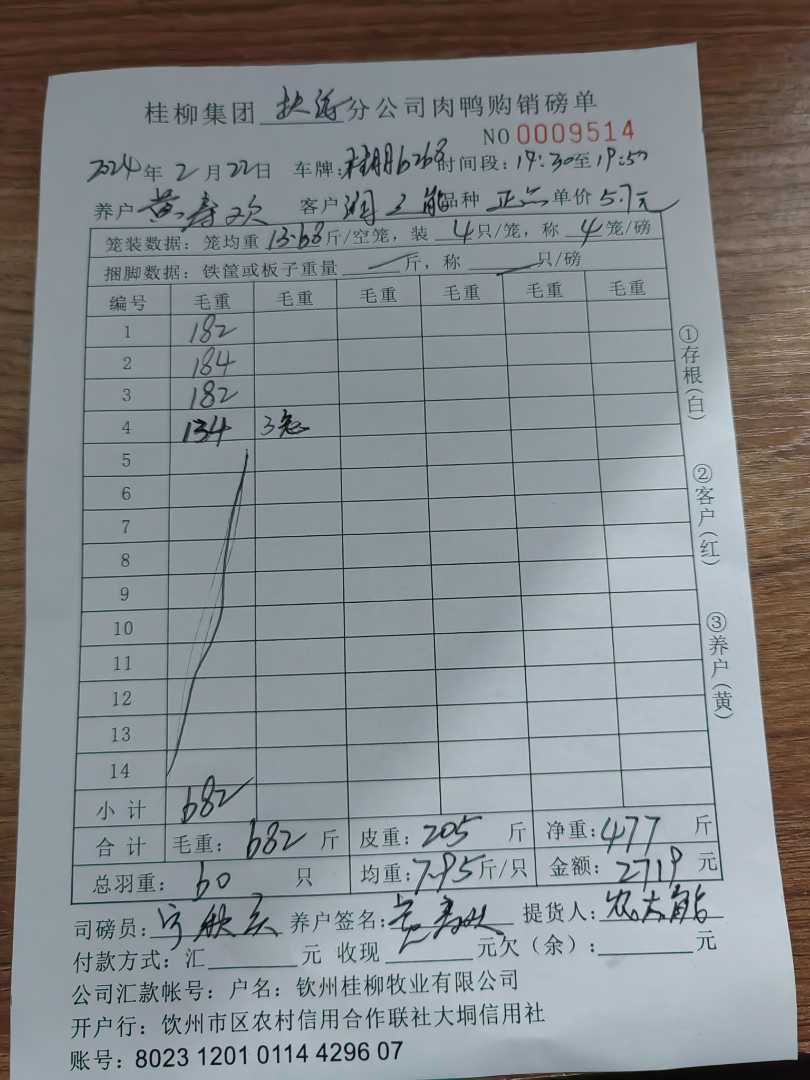 桂柳集团 分公司肉鸭购销磅单
NO 0009514
2024年2月22日 车牌: 6268 时间段:19:30至19:50
养户 黄寿欢 客户 品种 正品 单价 5.7元
笼装数据:笼均重 13.68斤/空笼,装 4只/笼,称 4笼/磅
捆脚数据:铁筐或板子重量 斤,称 只/磅
编号 毛重 毛重 毛重 毛重 毛重 毛重
1 182
2 184
3 182
4 134 3笼
5
6
7
8
9
10
11
12
13
14
小计 682
合计 毛重:682斤 皮重:205斤 净重:477斤
总羽重:60只 均重:7.95斤/只 金额:2719元
司磅员: 养户签名:黄寿欢 提货人:
付款方式:汇 元 收现 元欠(余): 元
公司汇款帐号:户名:钦州桂柳牧业有限公司
开户行:饮州市区农村信用合作联社大垌信用社
账号:8023 1201 0114 4296 07
①存根(白)
②客户(红)
③养户(黄)